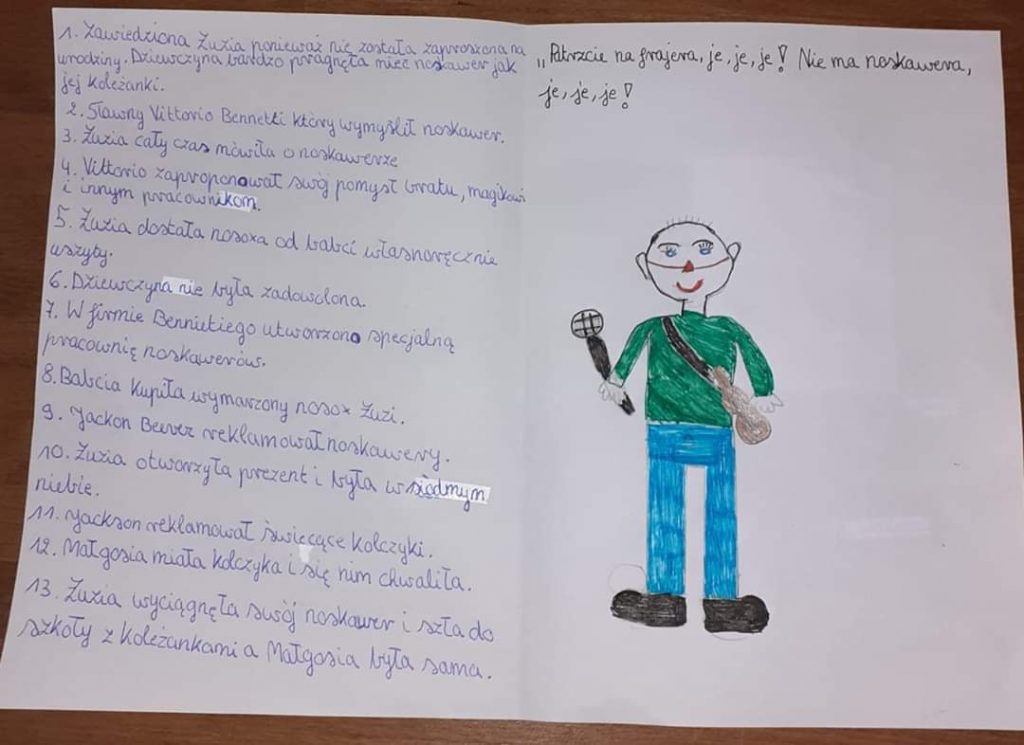 1. Zawiedziona Zuzia ponieważ nie została zaproszona na
urodziny. Dziewczyna bardzo pragnęła mieć noskawer jak
jej koleżanki.
2. Sławny Vittorio Bennetti który wymyślił noskawer.
3. Zuzia cały czas mówiła o noskawerze
4. Vittorio zaproponował swój pomysł bratu, magikowi
i innym pracownikom.
5. Zuzia dostała nosoxa od babci własnoręcznie
uszyty.
6. Dziewczyna nie była zadowolona.
7. W firmie Bennietiego utworzono specjalną
pracownię noskawerów.
8. Babcia kupiła wymarzony nosox Zuzi.
9. Jackon Beever reklamował noskawery.
10. Zuzia otworzyła prezent i była w siódmym
niebie.
11. Jackson reklamował świecące kolczyki.
12. Małgosia miała kolczyka i się nim chwaliła.
13. Zuzia wyciągnęła swój noskawer i szła do
szkoły z koleżankami a Małgosia była sama.
„Patrzcie na frajera, je, je, je! Nie ma noskawera,
je, je, je!